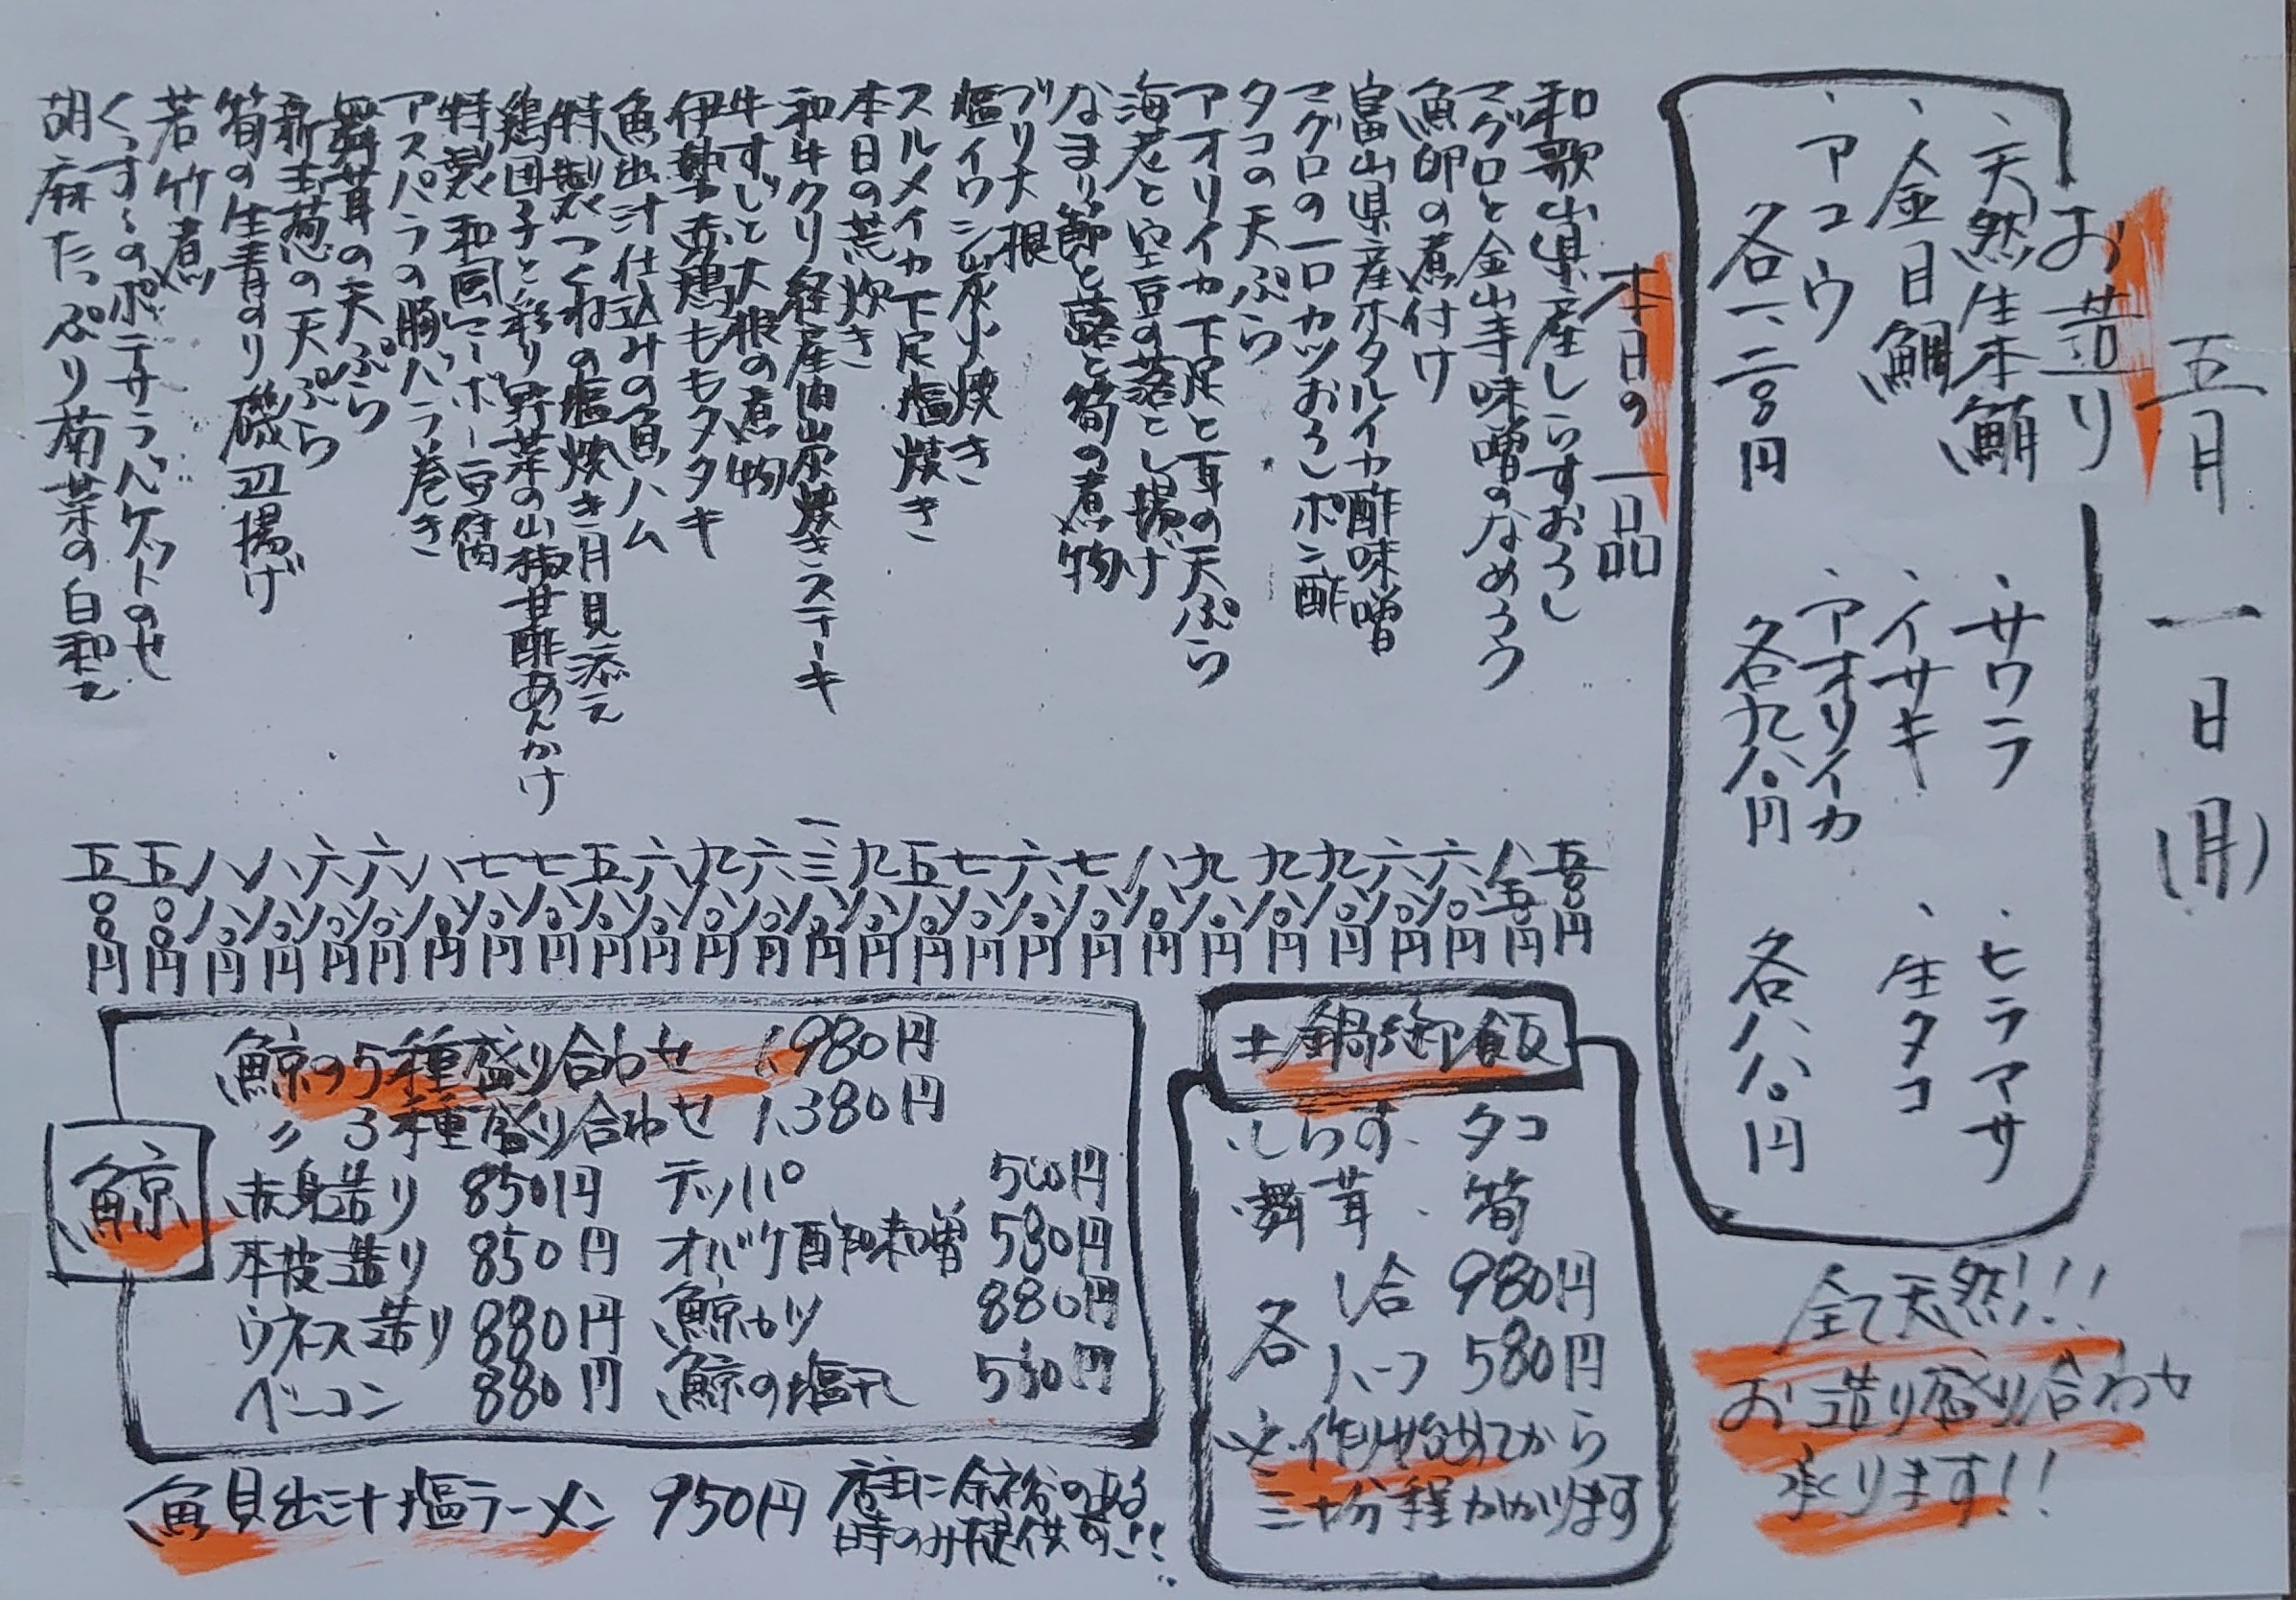 五月一日(月)
お造り
、天然生本鮪
、金目鯛
、アコウ
各一、二〇〇円
、サワラ
、イサキ
、アオリイカ
各九八〇円
、ヒラマサ
、生タコ
各八八〇円
全て天然!!!
お造り盛り合わせ
承ります!!
本日の一品
和歌山県産しらすおろし 五〇〇円
マグロと金山寺味噌のなめろう 八五〇円
魚卵の煮付け 六八〇円
富山県産ホタルイカ酢味噌 六八〇円
マグロの一口カツおろしポン酢 九八〇円
タコの天ぷら 九八〇円
アオリイカ下足と耳の天ぷら 九八〇円
海老と空豆の落とし揚げ 八八〇円
なまり節と蕗と筍の煮物 七八〇円
ブリ大根 六八〇円
塩イワシ炭火焼き 七八〇円
スルメイカ下足塩焼き 五八〇円
本日の荒炊き 九八〇円
和牛クリ経産肉炭焼きステーキ 一、三八〇円
牛すじと大根の煮物 六八〇円
伊勢赤鶏ももタタキ 九八〇円
魚出汁仕込みの魚ハム 六八〇円
特製つくねの塩焼き月見添え 五八〇円
鶏団子と彩り野菜の山椒甘酢あんかけ 七八〇円
特製和風マーボー豆腐 七八〇円
アスパラの豚バラ巻き 八八〇円
舞茸の天ぷら 六八〇円
新玉葱の天ぷら 六八〇円
筍の生青のり磯辺揚げ 八八〇円
若竹煮 八八〇円
くんすのポテサラバケットのせ 五八〇円
胡麻たっぷり菊菜の白和え 五〇〇円
土鍋御飯
しらす、タコ
舞茸、筍
各 1合 980円
ハーフ 580円
※作り始めてから
三十分程かかります
鯨
鯨の5種盛り合わせ 1,980円
〃 3種盛り合わせ 1,380円
赤身造り 850円
本皮造り 850円
ウネス造り 880円
ベーコン 880円
テッパ 500円
オバケ酢味噌 580円
鯨カツ 880円
鯨の塩干し
魚貝出汁塩ラーメン 950円
店主に余裕のある
時のみ提供です!!